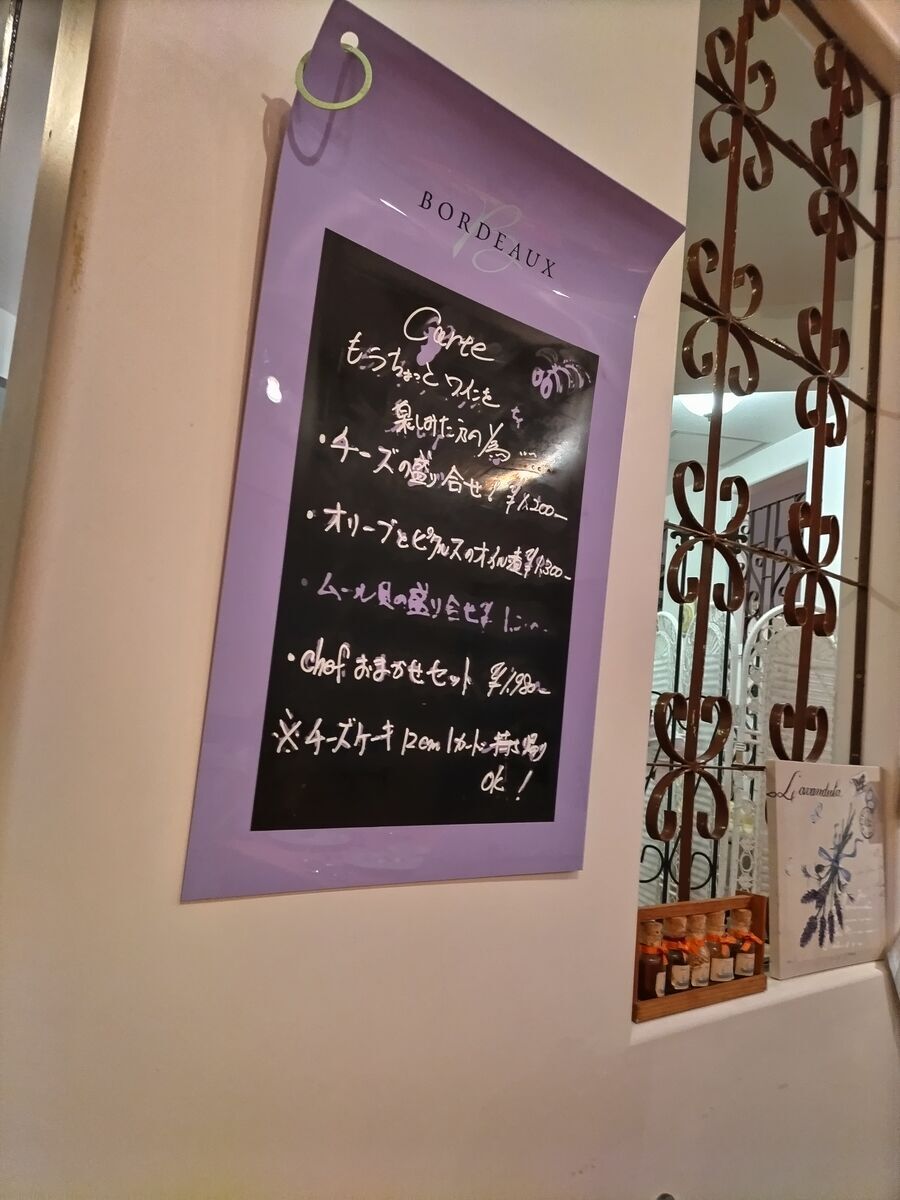 BORDEAUX
Carte
もうちょっとワインを
楽しみた方の為…
・チーズの盛り合せ! ¥1,200-
・オリーブとピクルスのオイル漬 ¥1,300-
・ムール貝の盛り合せ ¥
・chef おまかせセット ¥1,980-
※チーズケーキ 12cm 1カートン持ち帰り
ok!
Lavandula